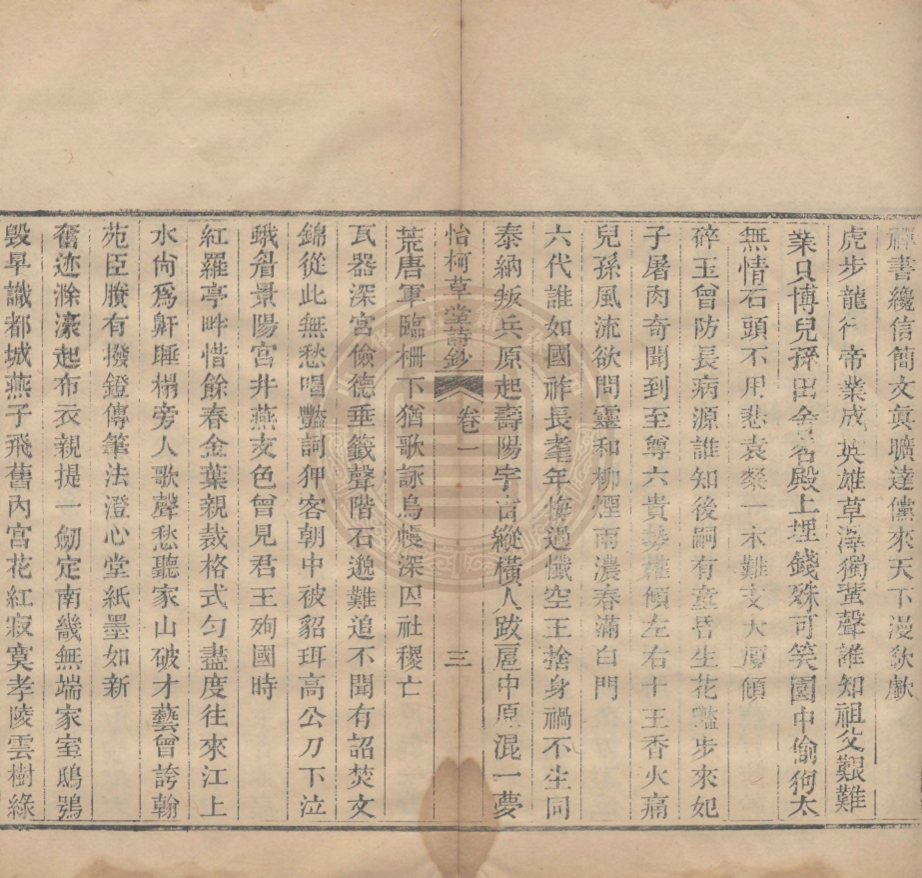 禪書纔信簡文真曠達儻來天下漫欷歔
虎步龍行帝業成英雄草澤獨蜚聲誰知祖父艱難
業只博兒孫田舍名殿上埋錢殊可笑園中偷狗太
無情石頭不用悲袁粲一木難支大廈傾
碎玉曾防長病源誰知後嗣有童昏生花豔步來妃
子屠肉奇聞到至尊六貴勢權傾左右十王香火痛
兒孫風流欲問靈和柳煙雨濃春滿白門
六代誰如國祚長耄年悔過懺空王捨身禍不生同
泰納叛兵原起壽陽宇宙縱橫人跋扈中原混一夢
怡柯草堂詩鈔 卷一 三
荒唐軍臨柵下猶歌詠烏幔深囚社稷亡
瓦器深宮儉德垂籤聲階石邈難追不聞有詔焚文
錦從此無愁唱豔詞狎客朝中被貂珥高公刀下泣
蛾眉景陽宮井燕支色曾見君王殉國時
紅羅亭畔惜餘春金葉親裁格式勻盡度往來江上
水尙爲鼾睡榻旁人歌聲愁聽家山破才藝曾誇翰
苑臣賸有撥鐙傳筆法澄心堂紙墨如新
奮迹滁濠起布衣親提一劒定南畿無端家室鴟鴞
毀早識都城燕子飛舊內宮花紅寂寞孝陵雲樹綠